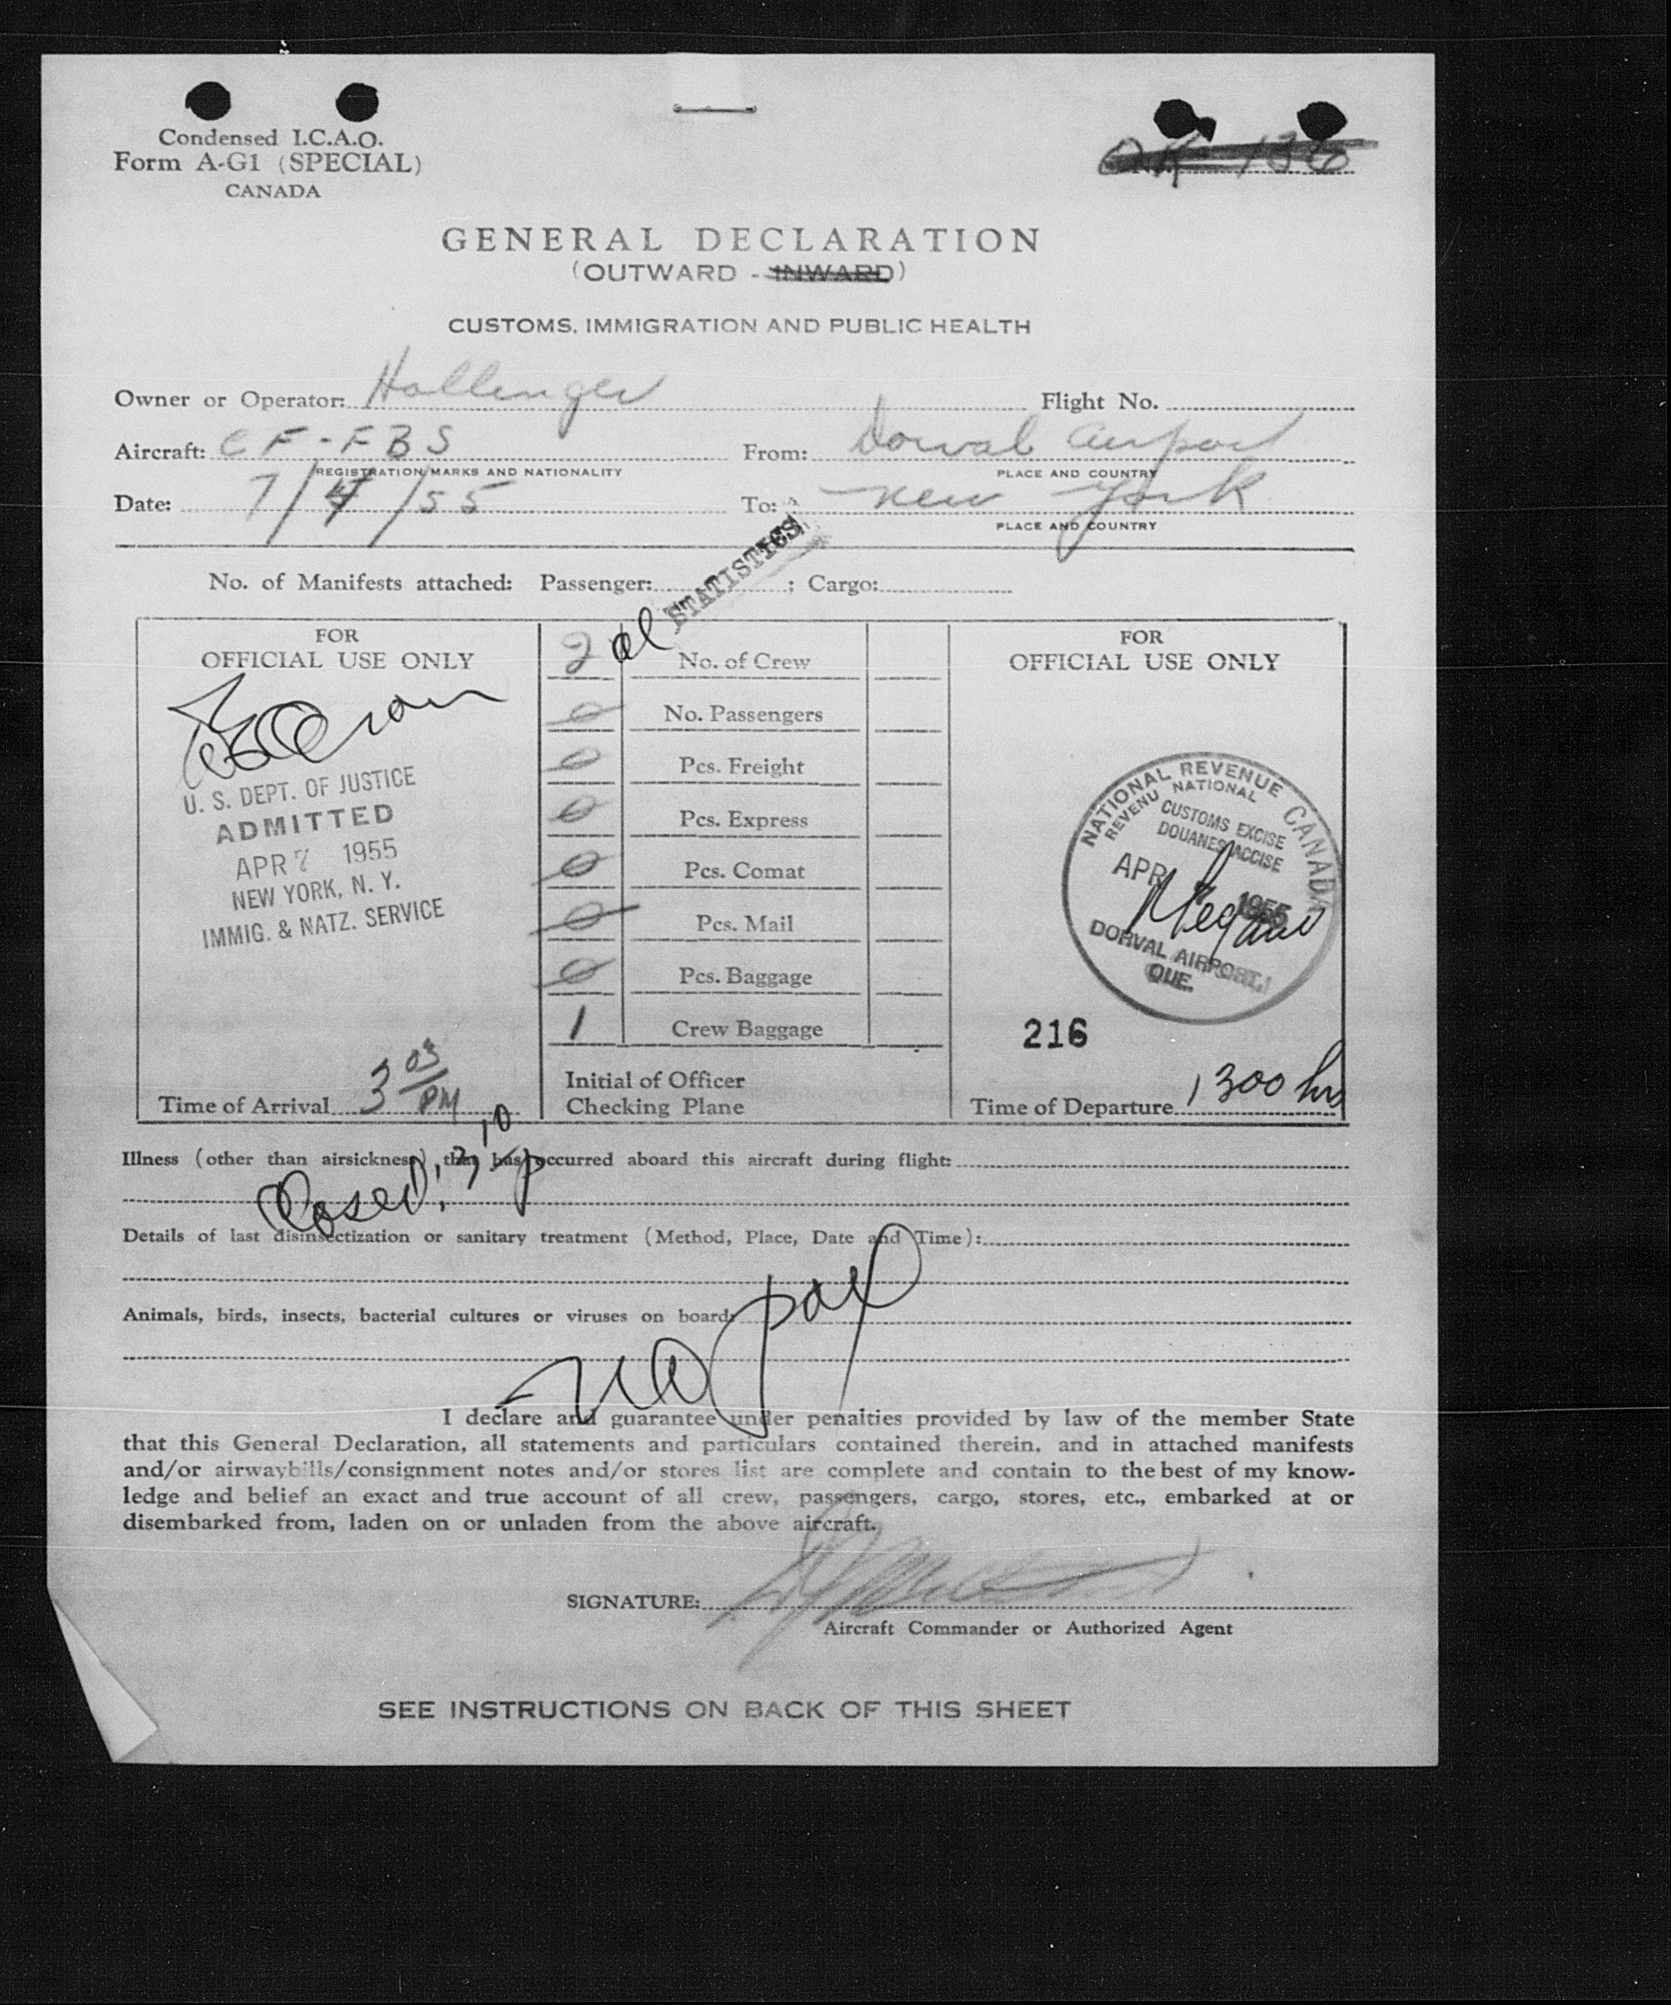 Condensed I.C.A.O.
Form A-G1 (SPECIAL)
CANADA
GENERAL DECLARATION
(OUTWARD - INWARD)
CUSTOMS, IMMIGRATION AND PUBLIC HEALTH
Owner or Operator: Hollenger Flight No.
Aircraft: CF-FBS From: Dorval Airport
REGISTRATION MARKS AND NATIONALITY PLACE AND COUNTRY
Date: 7/4/55 To: New York
PLACE AND COUNTRY
STATISTICS
No. of Manifests attached: Passenger: ; Cargo:
FOR
OFFICIAL USE ONLY
U. S. DEPT. OF JUSTICE
ADMITTED
APR 7 1955
NEW YORK, N. Y.
IMMIG. & NATZ. SERVICE
Time of Arrival 3 03 PM
2 No. of Crew
0 No. Passengers
0 Pcs. Freight
0 Pcs. Express
0 Pcs. Comat
0 Pcs. Mail
0 Pcs. Baggage
1 Crew Baggage
Initial of Officer
Checking Plane
FOR
OFFICIAL USE ONLY
NATIONAL REVENUE CANADA
REVENU NATIONAL
CUSTOMS EXCISE
DOUANES ACCISE
APR 1955
DORVAL AIRPORT,
QUE.
216
Time of Departure 1300 hrs
Illness (other than airsickness) that has occurred aboard this aircraft during flight:
Closed! 3 10 p
Details of last disinsectization or sanitary treatment (Method, Place, Date and Time):
Animals, birds, insects, bacterial cultures or viruses on board:
no pax
I declare and guarantee under penalties provided by law of the member State
that this General Declaration, all statements and particulars contained therein, and in attached manifests
and/or airwaybills/consignment notes and/or stores list are complete and contain to the best of my know-
ledge and belief an exact and true account of all crew, passengers, cargo, stores, etc., embarked at or
disembarked from, laden on or unladen from the above aircraft.
SIGNATURE:
Aircraft Commander or Authorized Agent
SEE INSTRUCTIONS ON BACK OF THIS SHEET